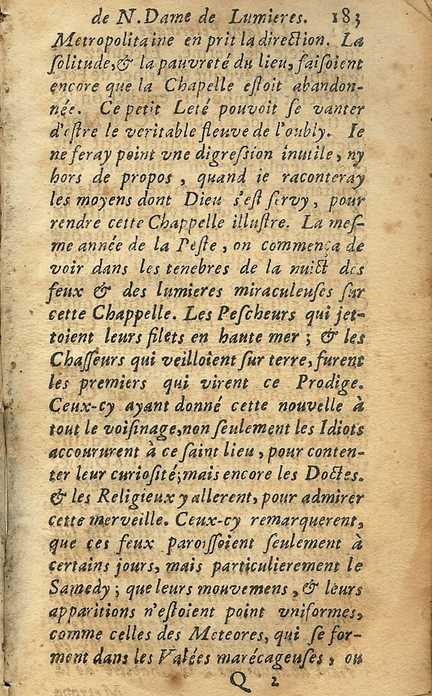 de N. Dame de Lumieres. 183
Metropolitaine en prit la direction. La
ſolitude, & la pauvreté du lieu, faiſoient
encore que la Chapelle eſtoit abandon-
née. Ce petit Leté pouvoit ſe vanter
d'eſtre le veritable fleuve de l'oubly. Ie
ne feray point vne digreſſion inutile, ny
hors de propos, quand ie raconteray
les moyens dont Dieu s'eſt ſervy, pour
rendre cette Chappelle illuſtre. La meſ-
me année de la Peſte, on commença de
voir dans les tenebres de la nuict des
feux & des lumieres miraculeuſes ſur
cette Chappelle. Les Peſcheurs qui jet-
toient leurs filets en haute mer; & les
Chaſſeurs qui veilloient ſur terre, furent
les premiers qui virent ce Prodige.
Ceux-cy ayant donné cette nouvelle à
tout le voiſinage, non ſeulement les Idiots
accoururent à ce ſaint lieu, pour conten-
ter leur curioſité; mais encore les Doctes.
& les Religieux y allerent, pour admirer
cette merveille. Ceux-cy remarquerent,
que ces feux paroiſſoient ſeulement à
certains jours, mais particulierement le
Samedy; que leurs mouvemens, & leurs
apparitions n'eſtoient point vniformes,
comme celles des Meteores, qui ſe for-
ment dans les Valées marécageuſes, ou
Q 2